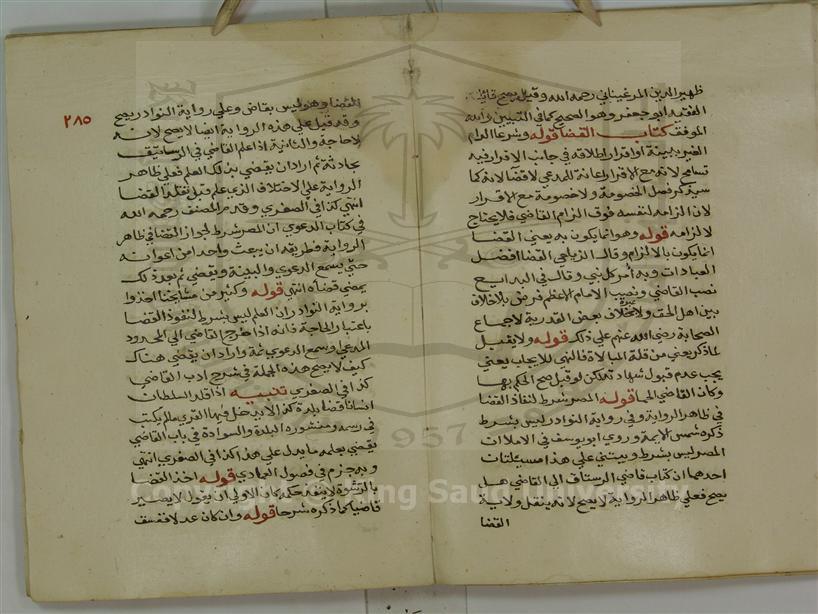 ظهير الدين المرغيناني رحمه الله وقيل يصح قائله
الفقيه ابو جعفر وهو الصحيح كما في التبيين والله
الموفق كتاب القضا قوله وشرعا الزام
الغير ببينة او اقرار اطلاقه في جانب الاقرار فيه
تسامح لانه مع الاقرار اعانة للمدعي لا قضا لانه كما
سيذكر فصل الخصومة ولا خصومة مع الاقرار
لان الزامه لنفسه فوق الزام القاضي فلا يحتاج
لالزامه قوله وهو انما يكون به يعني القضا
انما يكون بالالزام وقال الزيلعي القضا افضل
العبادات وبه أمر كل نبي وقال في البدايع
نصب القاضي ونصب الامام الاعظم فرض بلا خلاف
بين اهل الحق ولا عبرة بخلاف بعض القدرية لاجماع
الصحابة رضي الله عنهم على ذلك قوله ولا يقبل
لما ذكر يعني من قلة المبالاة فالنهي للايجاب يعني
يجب عدم قبول شهادته لكن لو قبل صح الحكم بها
وكان القاضي اثما قوله المصر شرط لنفاذ القضا
في ظاهر الرواية وفي رواية النوادر ليس بشرط
ذكره شمس الايمة وروي ابو يوسف في الامالي ان
المصر ليس بشرط ويبتني على هذا مسيلتان
احدهما ان كتاب قاضي الرستاق الى القاضي هل
يصح فعلى ظاهر الرواية لا يصح لانه ينقل ولاية
القضا
٢٨٥
القضا وهو ليس بقاض وعلى رواية النوادر يصح
وقد قيل على هذه الرواية ايضا لا يصح لانه
لا حاجة والثانية اذا علم القاضي في الرساتيق
بحادثة ثم اراد ان يقضي بذلك العلم فعلى ظاهر
الرواية على الاختلاف الذي علم قبل تقلد القضا
انتهى كذا في الصغرى وقدم المصنف رحمه الله
في كتاب الدعوى ان المصر شرط لجواز القضا في ظاهر
الرواية وطريقه ان يبعث واحدا من اعوانه
حتى يسمع الدعوى والبينة ويقضي ثم بعد ذلك
يمضي قضاه انتهى قوله وكثير من مشايخنا اخذوا
برواية النوادر ان العلم ليس بشرط لنفوذ القضا
باعتبار الحاجة فانه اذا خرج القاضي الى المحدود
المدعي وسمع الدعوى ثمة واراد ان يقضي هناك
كيف لا يصح هذه الجملة في شرح ادب القاضي
كذا في الصغرى تنبيه اذا قلد السلطان
انسانا قضا بلدة كذا لا يدخل فيها القرى ما لم يكتب
في رسمه ومنشوره البلدة والسوادة في باب القاضي
يقضي بعلمه ما يدل على هذا كذا في الصغرى انتهى
وبه جزم في فصول العمادي قوله اخذ القضا
بالرشوة لا ينفذ حكمه كان الاولى ان يقول لا يصير
قاضيا كما ذكره شرحا قوله وان كان عدلا ففسق